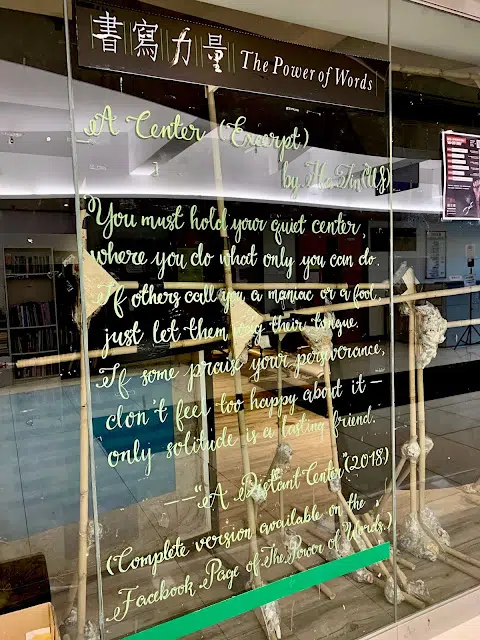 書寫力量 The Power of Words
A Center (Excerpt)
by Ha Jin (US)
You must hold your quiet center,
where you do what only you can do.
If others call you a maniac or a fool,
just let them wag their tongue.
If some praise your perseverance,
don't feel too happy about it—
only solitude is a lasting friend.
——"A Distant Center" (2018)
(Complete version available on the
Facebook Page of The Power of Words.)